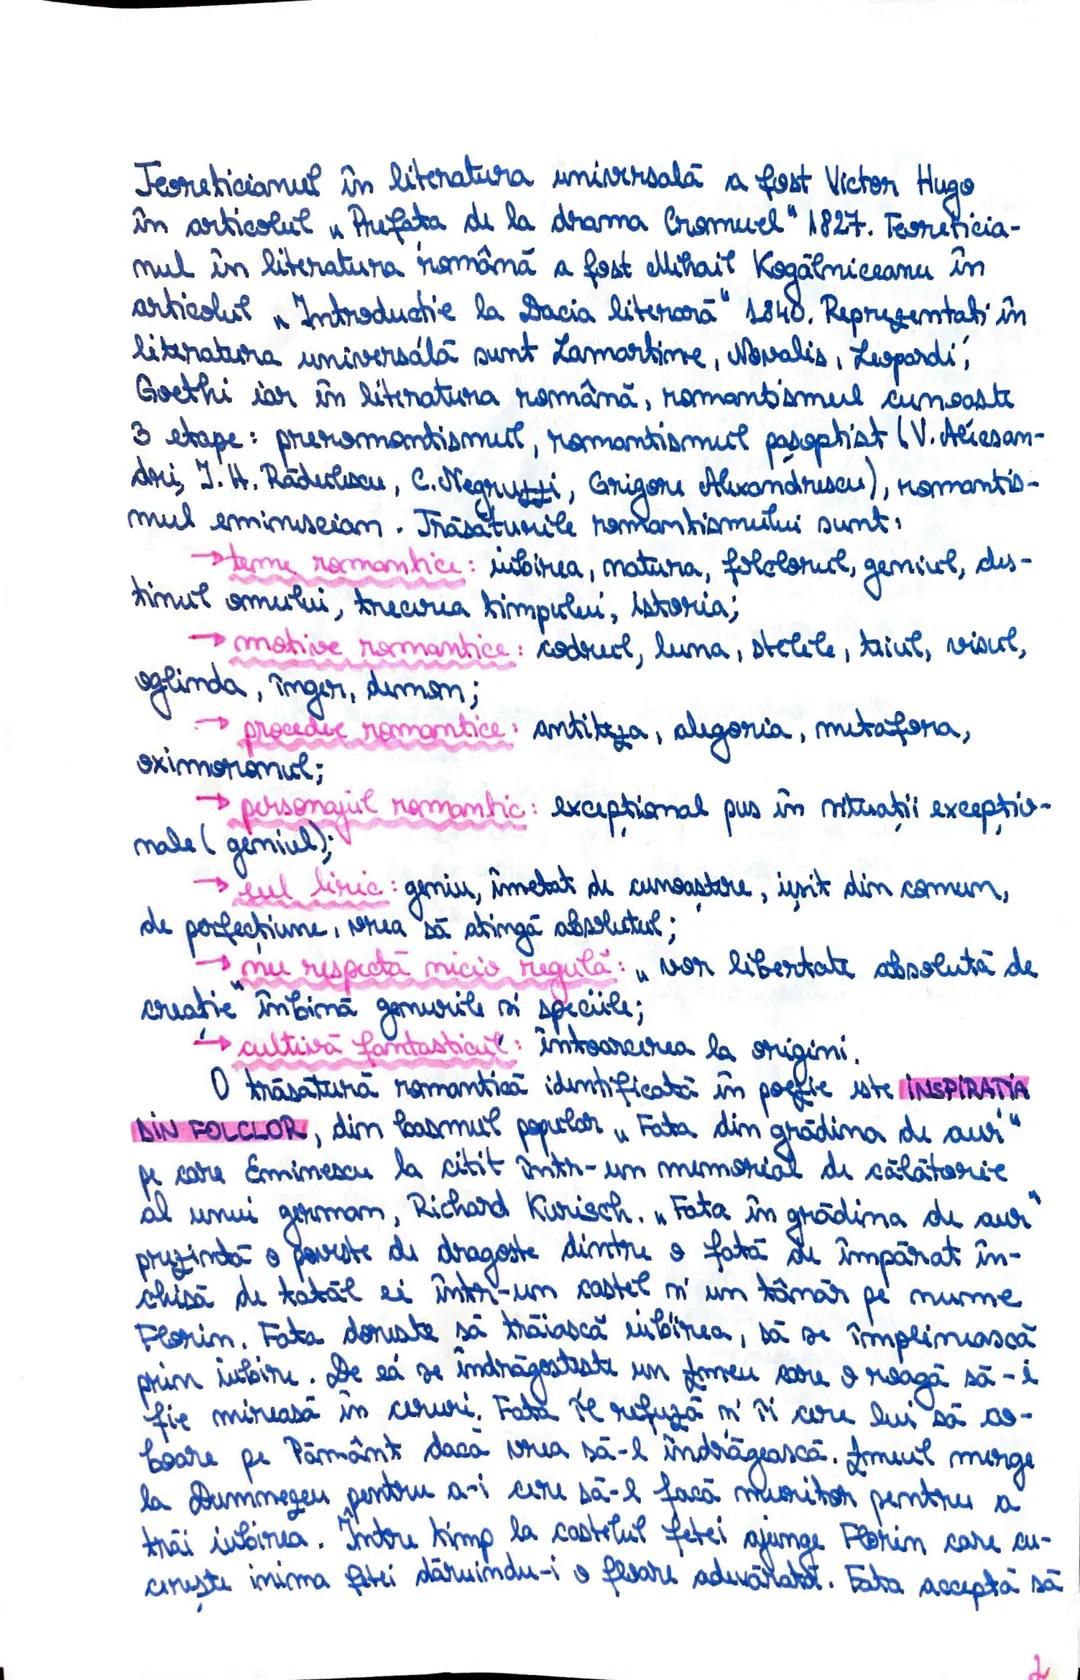 Teoreticianul în literatura universală a fost Victor Hugo
în articolul „Prefața de la drama Cromwel" 1827. Teoreticia-
nul în literatura română a fost Mihail Kogălniceanu în
articolul „Introducție la Dacia literară" 1840. Reprezentați în
literatura universală sunt Lamartine, Novalis, Leopardi,
Goethi iar în literatura română, romantismul cunoaste
3 etape: preromantismul, romantismul pașoptist (V. Alecsan-
dri, I. H. Rădulescu, C. Negruzzi, Grigore Alexandrescu), romantis-
mul eminescian. Trăsăturile romantismului sunt:
→ teme romantice: iubirea, natura, folclorul, geniul, des-
tinul omului, trecerea timpului, istoria;
→ motive romantice: codrul, luna, stelele, teiul, visul,
oglinda, înger, demon;
→ procedee romantice: antiteza, alegoria, metafora,
oximoronul;
→ personajul romantic: excepțional pus în situații excepțio-
nale (geniul);
→ eul liric: geniu, însetat de cunoastere, ieșit din comun,
de perfecțiune, vrea să atingă absolutul;
→ nu respectă nicio regulă: „vor libertate absolută de
creație" îmbină genurile si speciile;
→ cultivă fantasticul: întoarcerea la origini.
O trăsătură romantică identificată în poezie este INSPIRATIA
DIN FOLCLOR, din basmul popular „Fata din grădina de aur"
pe care Eminescu la citit într-un memorial de călătorie
al unui german, Richard Kunisch. „Fata în grădina de aur"
prezintă o poveste de dragoste dintre o fată de împărat în-
chisă de tatăl ei într-un castel si un tânăr pe nume
Florin. Fata doreste să trăiască iubirea, să se împlinească
prin iubire. De ea se îndrăgosteste un zmeu care o roagă să-i
fie mireasă în ceruri. Fata îl refuză si îi cere lui să co-
boare pe Pământ dacă vrea să-l îndrăgească. Zmeul merge
la Dumnezeu pentru a-i cere să-l facă muritor pentru a
trăi iubirea. Între timp la castelul fetei ajunge Florin care cu-
cerește inima fetei dăruindu-i o floare adevărată. Fata acceptă să
2